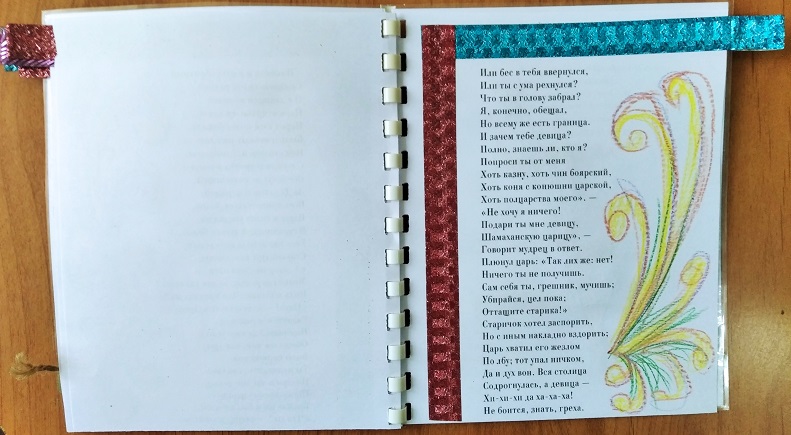 Или бес в тебя ввернулся,
Или ты с ума рехнулся?
Что ты в голову забрал?
Я, конечно, обещал,
Но всему же есть граница.
И зачем тебе девица?
Полно, знаешь ли, кто я?
Попроси ты от меня
Хоть казну, хоть чин боярский,
Хоть коня с конюшни царской,
Хоть полцарства моего». —
«Не хочу я ничего!
Подари ты мне девицу,
Шамаханскую царицу», —
Говорит мудрец в ответ.
Плюнул царь: «Так лих же: нет!
Ничего ты не получишь.
Сам себя ты, грешник, мучишь;
Убирайся, цел пока;
Оттащите старика!»
Старичок хотел заспорить,
Но с иным накладно вздорить;
Царь хватил его жезлом
По лбу; тот упал ничком,
Да и дух вон. Вся столица
Содрогнулась, а девица —
Хи-хи-хи да ха-ха-ха!
Не боится, знать, греха.